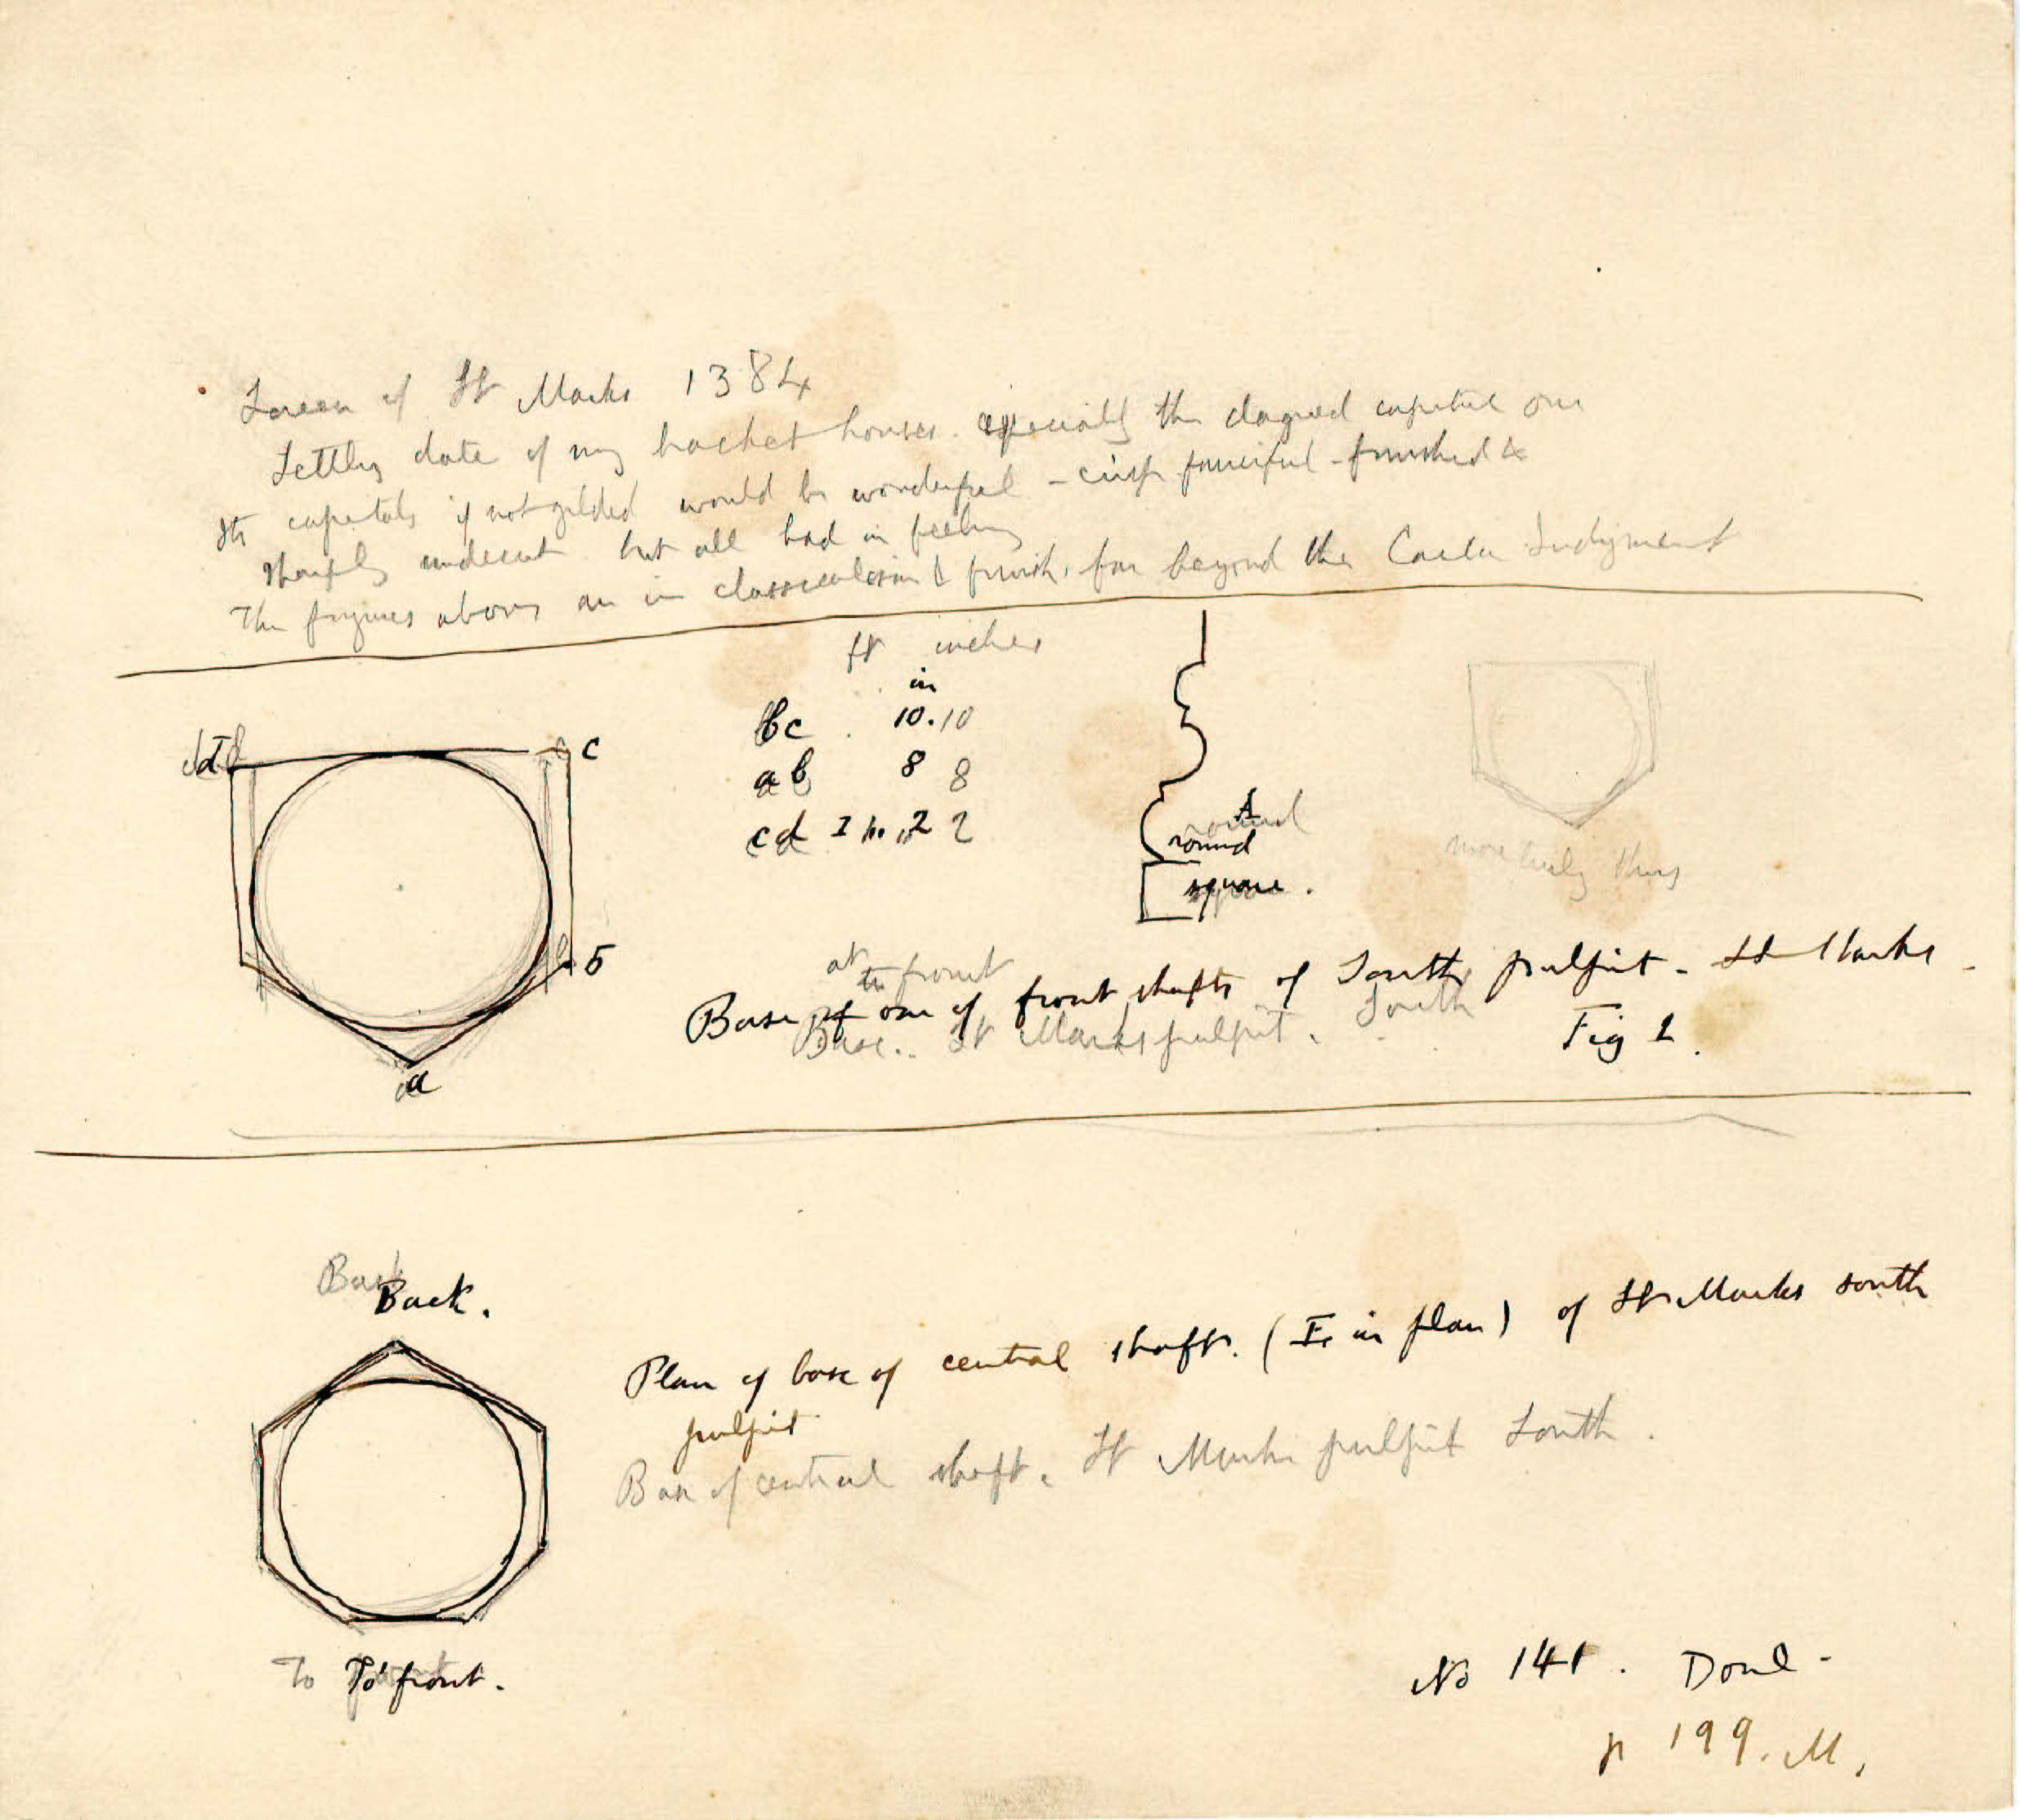 Screen of St Marks 1384
Settles date of my bracket houses. especially the dagned capital one
Its capitals if not gilded would be wonderful - crisp fanciful - finished &
sharply undercut but all bad in feeling
The figures above are in classicalism & finish, far beyond the Judgment
ft inches
in
bc 10. 10
ab 8 8
cd I 2 2
d
d
c
c
b
b
a
a
A
round
round
square.
square
more truly thus
at
to front
Base of one of front shafts of South pulpit - St Marks -
Base. St Marks pulpit. South
Fig 1.
Back
Back.
Plan of base of central shaft. (I. in plan) of St Marks south
pulpit
Base of central shaft. St Marks pulpit South.
To front
To front.
No 141. Done -
p 199. M.